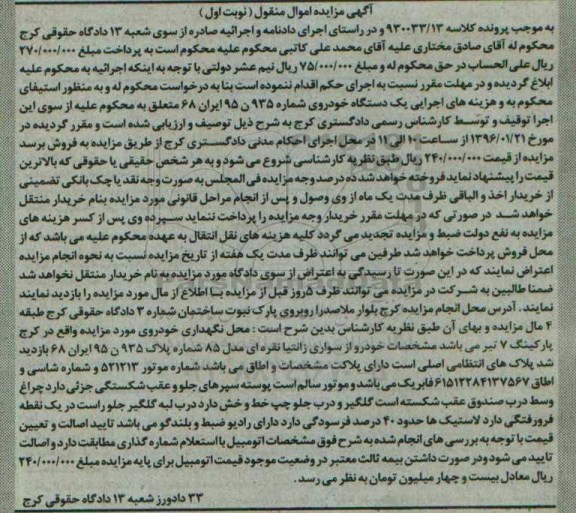 آگهی مزایده اموال منقول (نوبت اول)
به موجب پرونده کلاسه ۹۳۰۰۳۳/۱۳ و در راستای اجرای دادنامه و اجرائیه صادره از سوی شعبه ۱۳ دادگاه حقوقی کرج
محکوم له آقای صادق مختاری علیه آقای محمد علی کاتبی محکوم علیه محکوم است به پرداخت مبلغ ۲۷۰/۰۰۰/۰۰۰
ریال علی الحساب در حق محکوم له و مبلغ ۷۵/۰۰۰/۰۰۰ ریال نیم عشر دولتی با توجه به اینکه اجرائیه به محکوم علیه
ابلاغ گردیده و در مهلت مقرر نسبت به اجرای حکم اقدام ننموده است بنا به درخواست محکوم له و به منظور استیفای
محکوم به و هزینه های اجرایی یک دستگاه خودروی شماره ۹۳۵ ن ۹۵ ایران ۶۸ متعلق به محکوم علیه از سوی این
اجرا توقیف و توسط کارشناس رسمی دادگستری کرج به شرح ذیل توصیف و ارزیابی شده است و مقرر گردیده در
مورخ ۱۳۹۶/۰۱/۲۱ از ساعت ۱۰ الی ۱۱ در محل اجرای احکام مدنی دادگستری کرج از طریق مزایده به فروش برسد
مزایده از قیمت ۲۴۰/۰۰۰/۰۰۰ ریال طبق نظریه کارشناسی شروع می شود و به هر شخص حقیقی یا حقوقی که بالاترین
قیمت را پیشنهاد نماید فروخته خواهد شد ده درصد وجه مزایده فی المجلس به صورت وجه نقد یا چک بانکی تضمینی
از خریدار اخذ و الباقی ظرف مدت یک ماه از وی وصول و پس از انجام مراحل قانونی مورد مزایده بنام خریدار منتقل
خواهد شد در صورتی که در مهلت مقرر خریدار وجه مزایده را پرداخت ننماید سپرده وی پس از کسر هزینه های
مزایده به نفع دولت ضبط و مزایده تجدید می گردد کلیه هزینه های نقل انتقال به عهده محکوم علیه می باشد که از
محل فروش پرداخت خواهد شد طرفین می توانند ظرف مدت یک هفته از تاریخ مزایده نسبت به نحوه انجام مزایده
اعتراض نمایند که در این صورت تا رسیدگی به اعتراض از سوی دادگاه مورد مزایده به نام خریدار منتقل نخواهد شد
ضمنا طالبین به شرکت در مزایده می توانند ظرف ۵روز قبل از مزایده با اطلاع از مال مورد مزایده را بازدید نمایند
نمایند. آدرس محل انجام مزایده کرج بلوار ملاصدرا روبروی پارک نبوت ساختمان شماره ۳ دادگاه حقوقی کرج طبقه
۴ مال مزایده و بهای آن طبق نظریه کارشناس بدین شرح است: محل نگهداری خودروی مورد مزایده واقع در کرج
پارکینگ ۷ تیر می باشد مشخصات خودرو از سواری زانتیا نقره ای مدل ۸۵ شماره پلاک ۹۳۵ ن ۹۵ ایران ۶۸ بازدید
شد پلاک های انتظامی اصلی است دارای پلاکت مشخصات و اطاق می باشد شماره موتور ۵۲۱۲۱۳ و شماره شاسی و
اطاق ۶۱۵۱۲۲۸۴۱۳۷۵۶۷ فابریک می باشد و موتور سالم است پوسته سپرهای جلو و عقب شکستگی جزئی دارد چراغ
وسط درب صندوق عقب شکسته است گلگیر و درب جلو چپ خط و خش دارد درب لبه گلگیر جلو راست در یک نقطه
فرورفتگی دارد لاستیک ها حدود ۴۰ درصد فرسودگی دارد دارای رادیو ضبط و بلندگو می باشد تایید اصالت و تعیین
قیمت با توجه به بررسی های انجام شده به شرح فوق مشخصات اتومبیل با استعلام شماره گذاری مطابقت دارد و اصالت
تایید می شود ودر صورت داشتن بیمه ثالث معتبر در وضعیت موجود قیمت اتومبیل برای پایه مزایده مبلغ ۲۴۰/۰۰۰/۰۰۰
ریال معادل بیست و چهار میلیون تومان به نظر می رسد.
۳۳ دادورز شعبه ۱۳ دادگاه حقوقی کرج